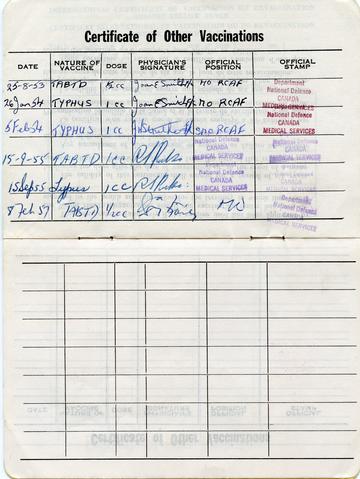 Certificate of Other Vaccinations
DATE NATURE OF VACCINE DOSE PHYSICIAN'S SIGNATURE OFFICIAL POSITION OFFICIAL STAMP
25-8-53 TABTD ½cc Joan E Smith MO RCAF Department National Defence CANADA MEDICAL SERVICES
26 Jan 54 TYPHUS 1 cc Joan E Smith MO RCAF National Defence CANADA MEDICAL SERVICES
5 Feb 54 TYPHUS 1 cc MO RCAF
15-9-55 TABTD 1cc National Defence CANADA MEDICAL SERVICES National Defence CANADA MEDICAL SERVICES
15 Sep 55 Typhus 1 cc National Defence CANADA MEDICAL SERVICES
8 Feb 57 TABTD ½cc MO Department National Defence CANADA MEDICAL SERVICES